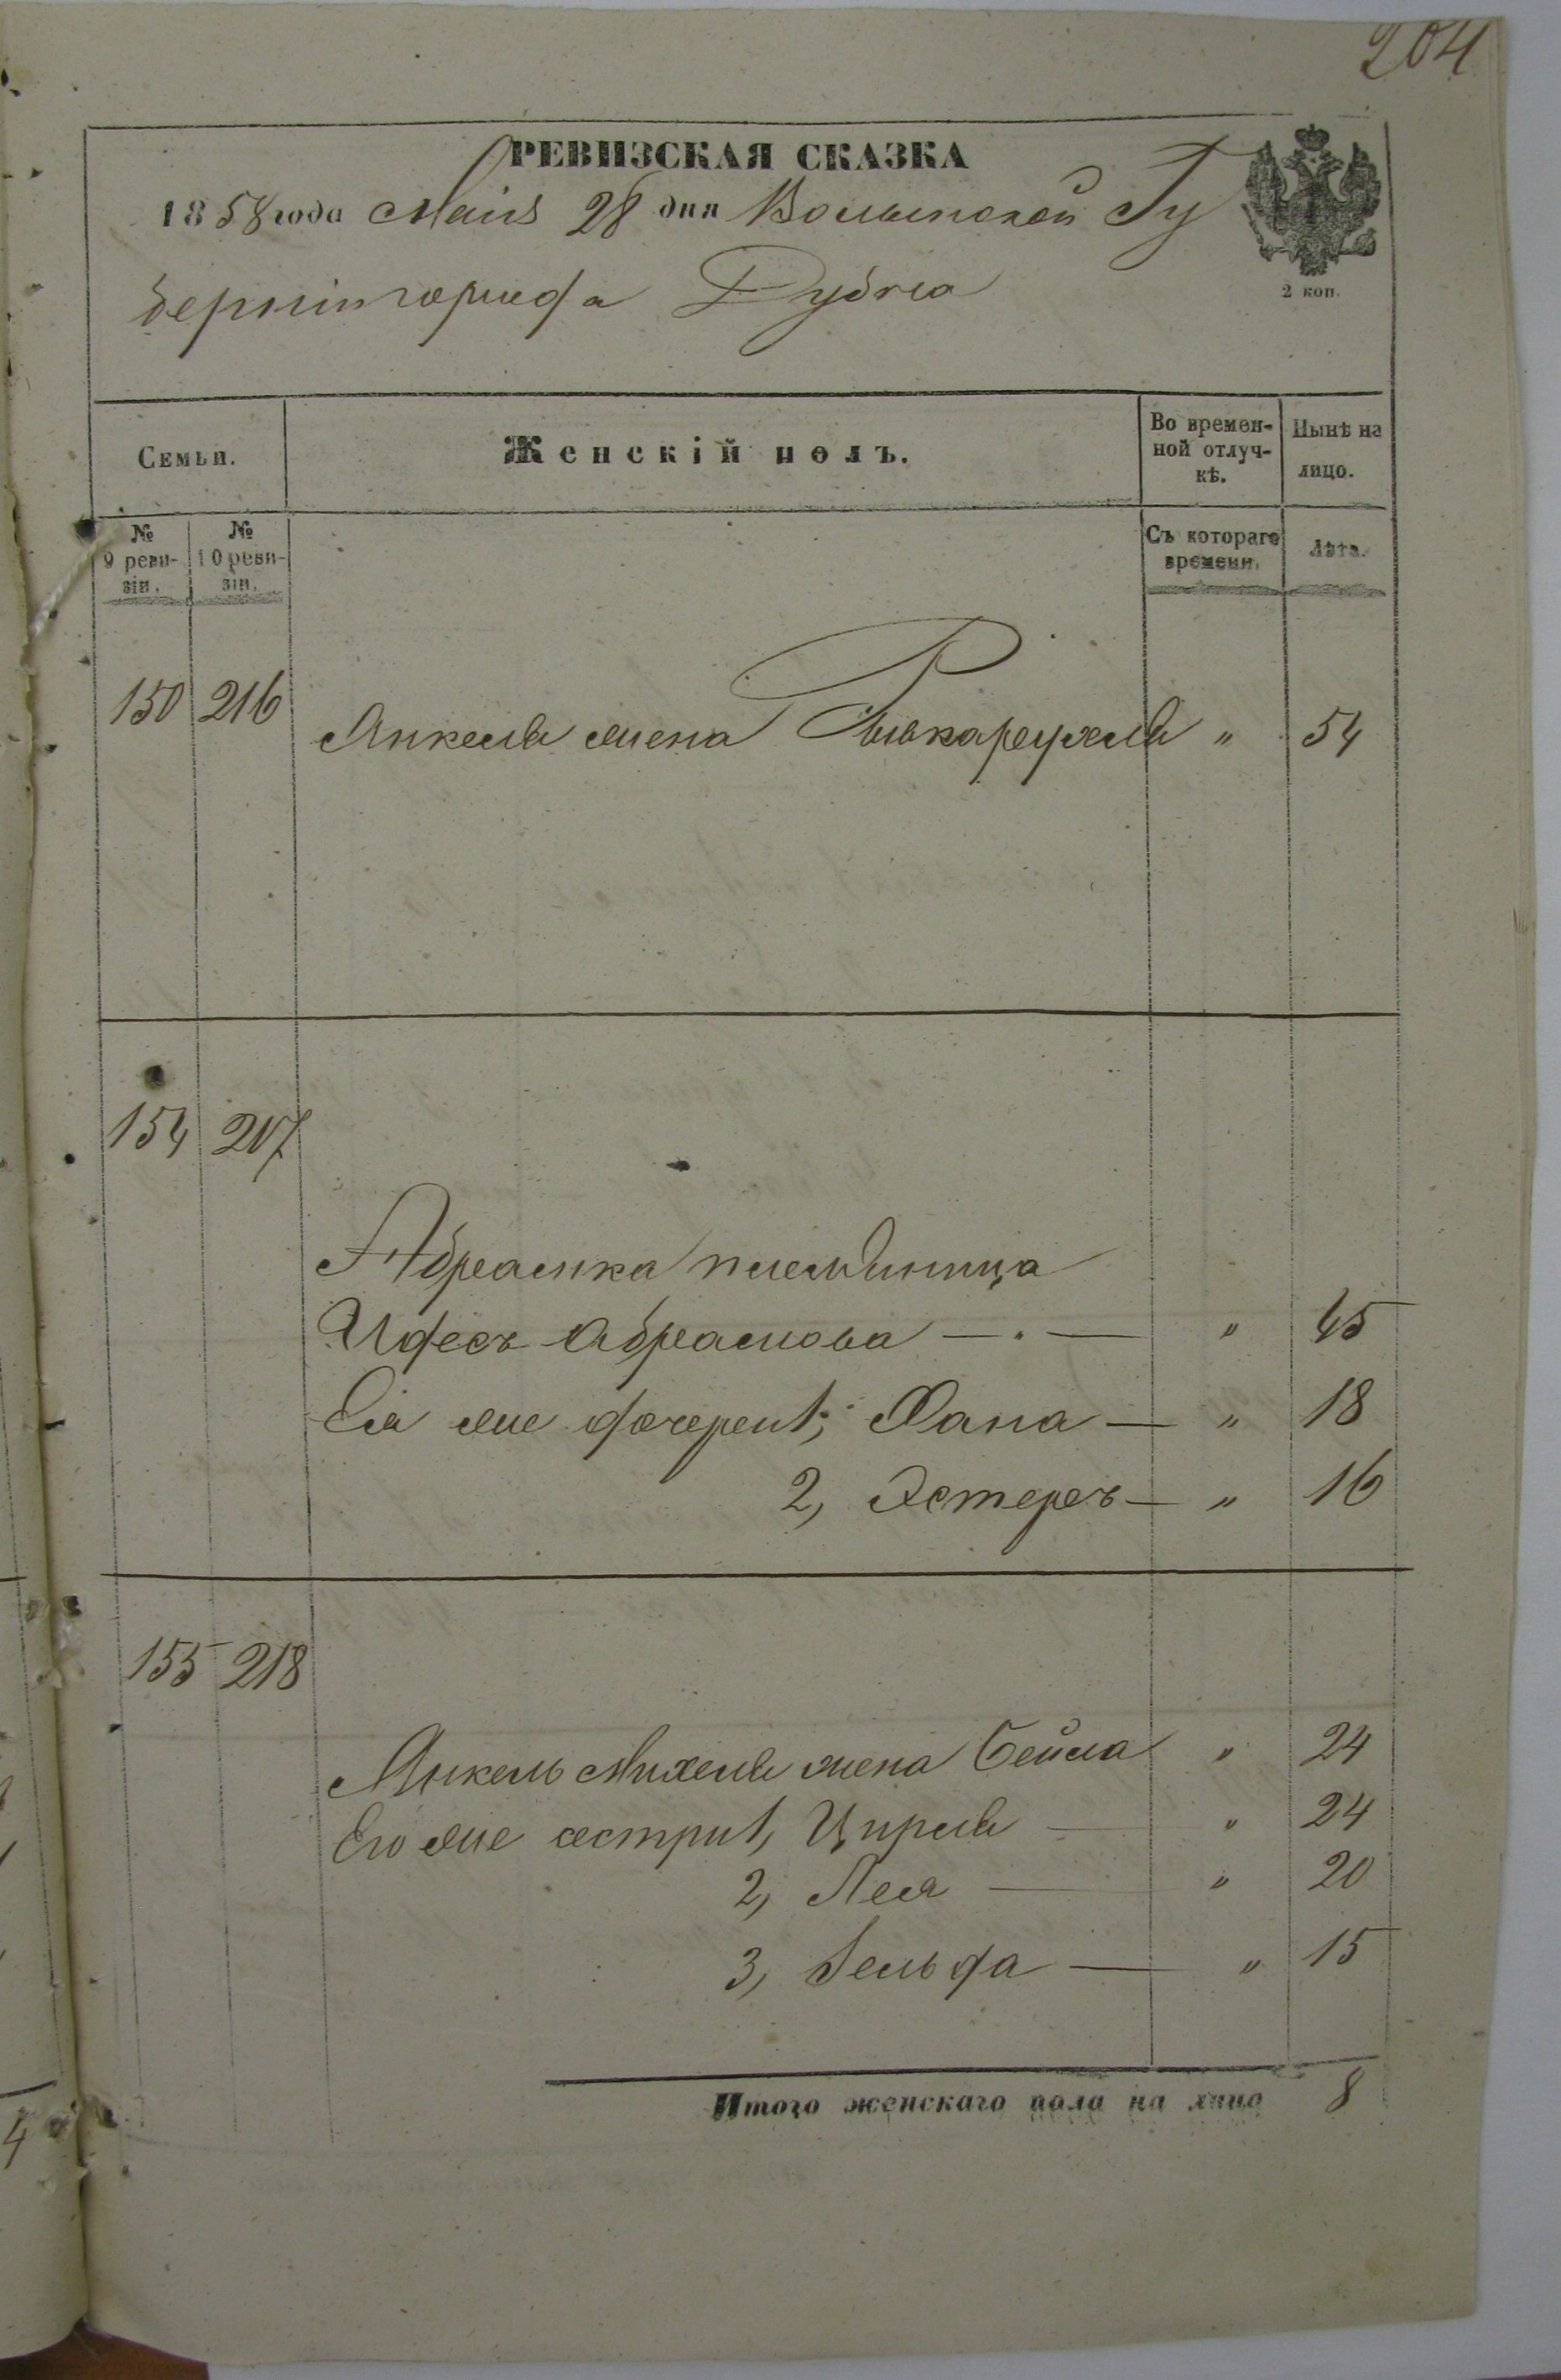 204
РЕВИЗСКАЯ СКАЗКА
1858 года Маія 28 дня Волынской Гу
берніи города Дубна
2 коп.
Семьи.
Женскій полъ.
Во времен-
ной отлуч-
кѣ.
Нынѣ на
лицо.
№
9 реви-
зіи.
№
10 реви-
зіи.
Съ котораго
времени.
Лѣта.
150 216 Янкеля жена Рывкарухля " 54
154 217
Абрамка племяница
Идесъ Абрамова — . — " 45
Ея же дочери 1, Хана — " 18
2, Эстеръ — " 16
155 218
Янкель Михеля жена Бейла " 24
Его же сестри 1, Цирля — " 24
2, Лея — " 20
3, Зельда — " 15
Итого женскаго пола на лицо 8
4